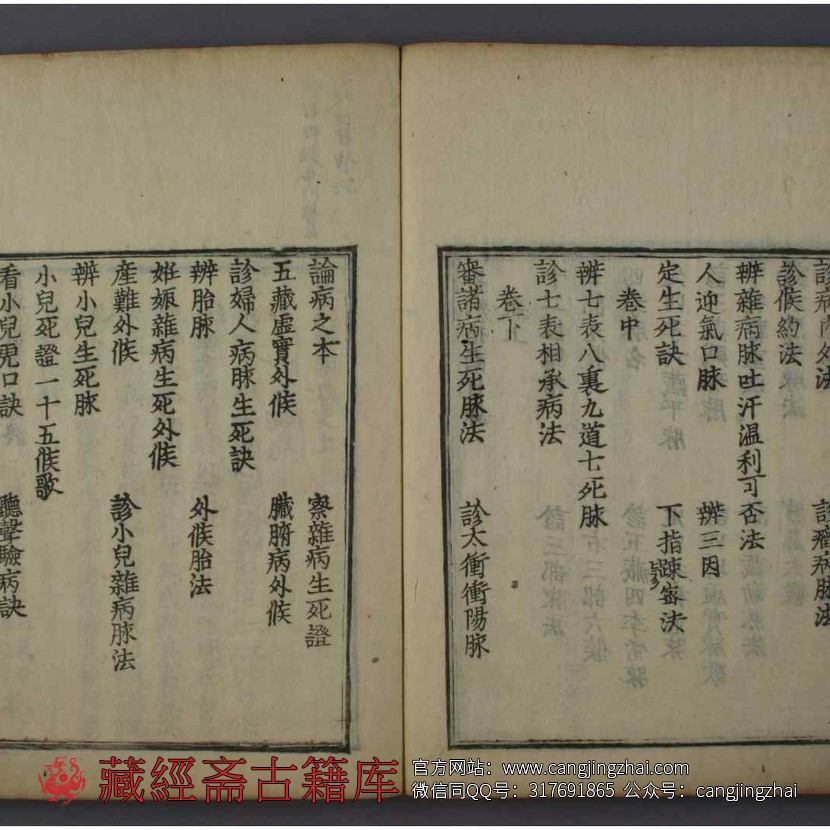 診候約法
辨雜病脉吐汗温利可否法
人迎氣口脉 辨三因
定生死訣 下指踈密法
卷中
辨七表八裏九道七死脉
診七表相承病法
卷下
審諸病生死脉法 診太衝衝陽脉
論病之本 察雜病生死證
五藏虛實外候 臟腑病外候
診婦人病脉生死訣
辨胎脉 外候胎法
妊娠雜病生死外候
產難外候 診小兒雜病脉法
辨小兒生死脉
小兒死證一十五候歌
看小兒虎口訣 聽聲驗病訣
藏經斋古籍库
官方网站：www.cangjingzhai.com
微信同QQ号：317691865 公众号：cangjingzhai